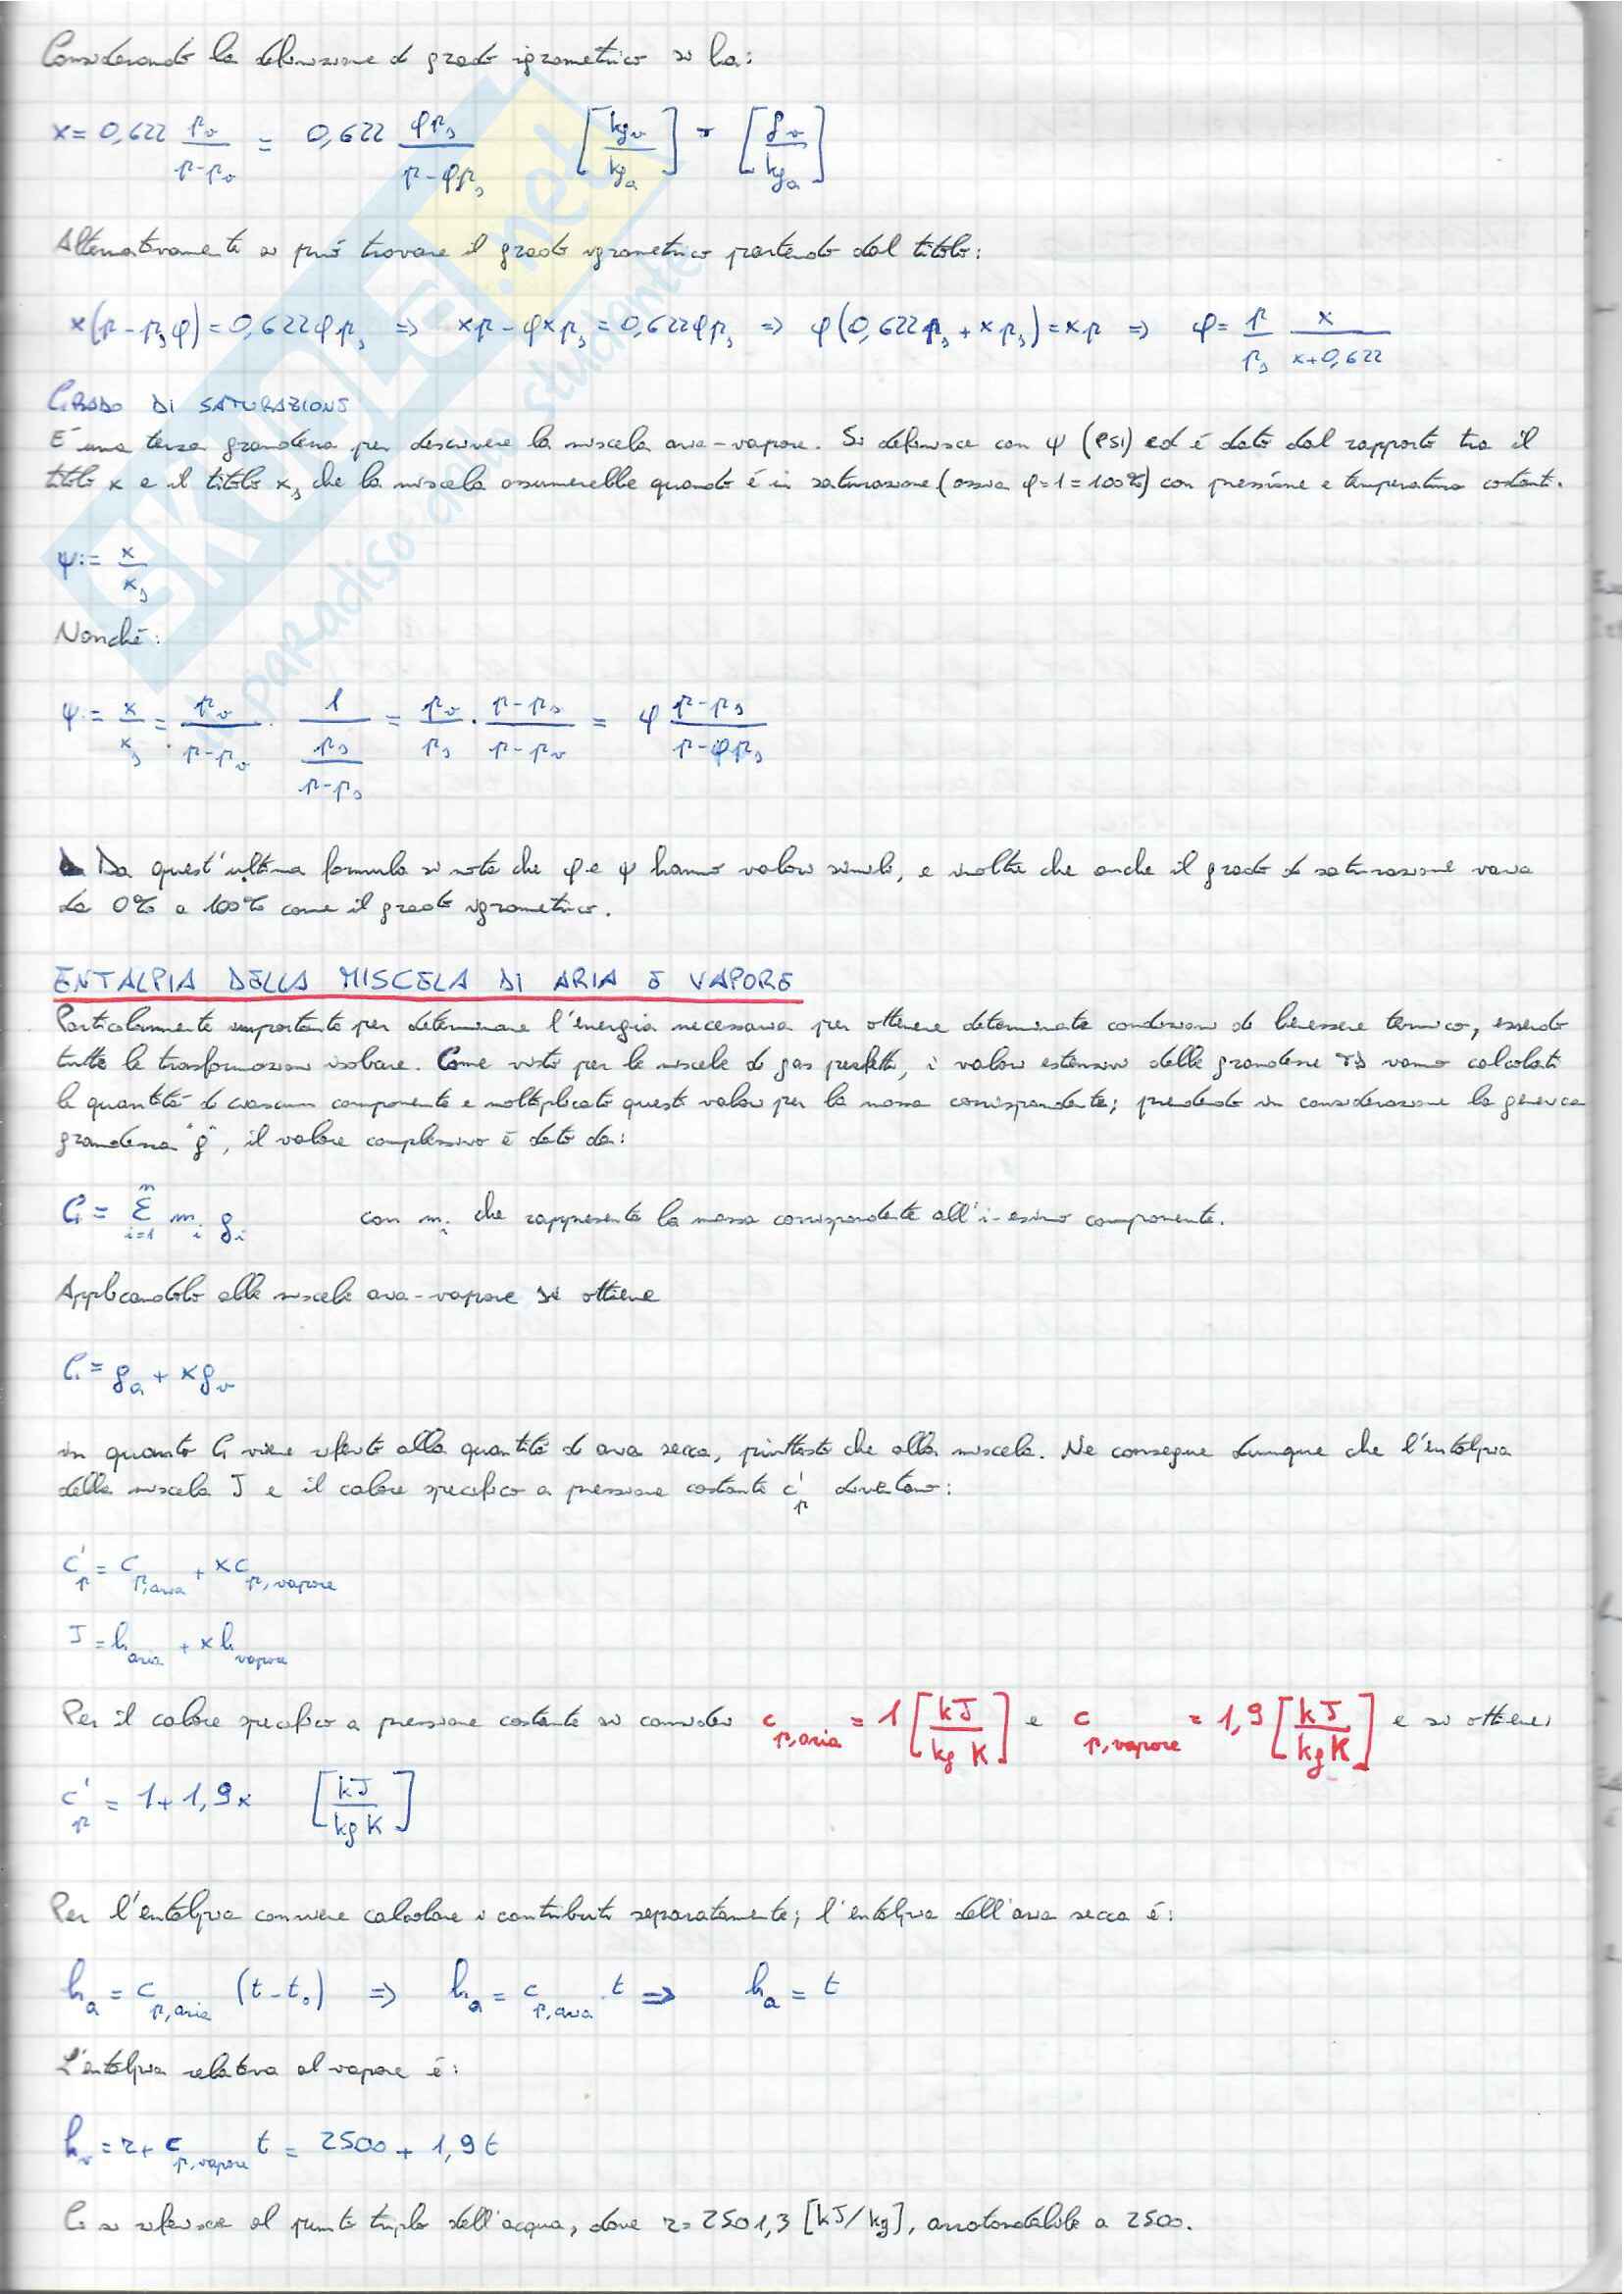 Considerando la definizione di grado igrometrico si ha:
x = 0,622 p_v/(p-p_v) = 0,622 φp_s/(p-φp_s) [kg_v/kg_a] o [g_v/kg_a]
Alternativamente si può trovare il grado igrometrico partendo dal titolo:
x(p-p_sφ) = 0,622φp_s ⇒ xp-φxp_s = 0,622φp_s ⇒ φ(0,622p_s+xp_s) = xp ⇒ φ = p/p_s x/(x+0,622)
GRADO DI SATURAZIONE
E' una terza grandezza per descrivere la miscela aria-vapore. Si definisce con ψ (PSI) ed è dato dal rapporto tra il
titolo x e il titolo x_s che la miscela assumerebbe quando è in saturazione (ossia φ=1=100%) con pressione e temperatura costanti.
ψ := x/x_s
Nonché:
ψ := x/x_s = p_v/(p-p_v) · 1/(p_s/(p-p_s)) = p_v/p_s · (p-p_s)/(p-p_v) = φ (p-p_s)/(p-φp_s)
Da quest'ultima formula si nota che φ e ψ hanno valori simili, e inoltre che anche il grado di saturazione varia
da 0% a 100% come il grado igrometrico.
ENTALPIA DELLA MISCELA DI ARIA E VAPORE
Particolarmente importante per determinare l'energia necessaria per ottenere determinate condizioni di benessere termico, essendo
tutte le trasformazioni isobare. Come visto per le miscele di gas perfetti, i valori estensivi delle grandezze TD vanno calcolati
le quantità di ciascun componente e moltiplicato questi valori per la massa corrispondente; prendendo in considerazione la generica
grandezza "g", il valore complessivo è dato da:
G = Σ_{i=1}^{n} m_i g_i con m_i che rappresenta la massa corrispondente all'i-esimo componente.
Applicandolo alla miscela aria-vapore si ottiene
G = g_a + xg_v
in quanto G viene riferito alla quantità di aria secca, piuttosto che alla miscela. Ne consegue dunque che l'entalpia
della miscela J e il calore specifico a pressione costante c'_p diventano:
c'_p = c_{p,aria} + xc_{p,vapore}
J = h_aria + xh_vapore
Per il calore specifico a pressione costante si considera c_{p,aria} = 1 [kJ/kg K] e c_{p,vapore} = 1,9 [kJ/kg K] e si ottiene:
c'_p = 1+1,9x [kJ/kg K]
Per l'entalpia conviene calcolare i contributi separatamente; l'entalpia dell'aria secca è:
h_a = c_{p,aria} (t-t_0) ⇒ h_a = c_{p,aria} · t ⇒ h_a = t
L'entalpia relativa al vapore è:
h_v = r + c_{p,vapore} t = 2500 + 1,9t
Ci si riferisce al punto triplo dell'acqua, dove r = 2501,3 [kJ/kg], arrotondabile a 2500.